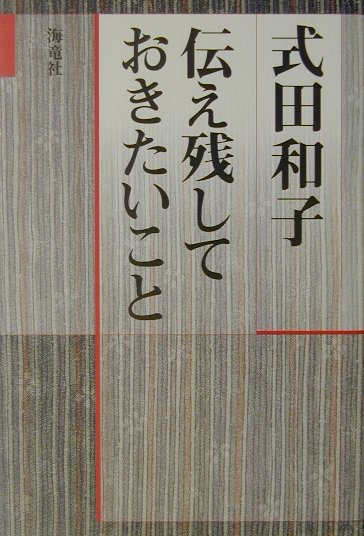 式田和子
伝え残して
おきたいこと
海竜社